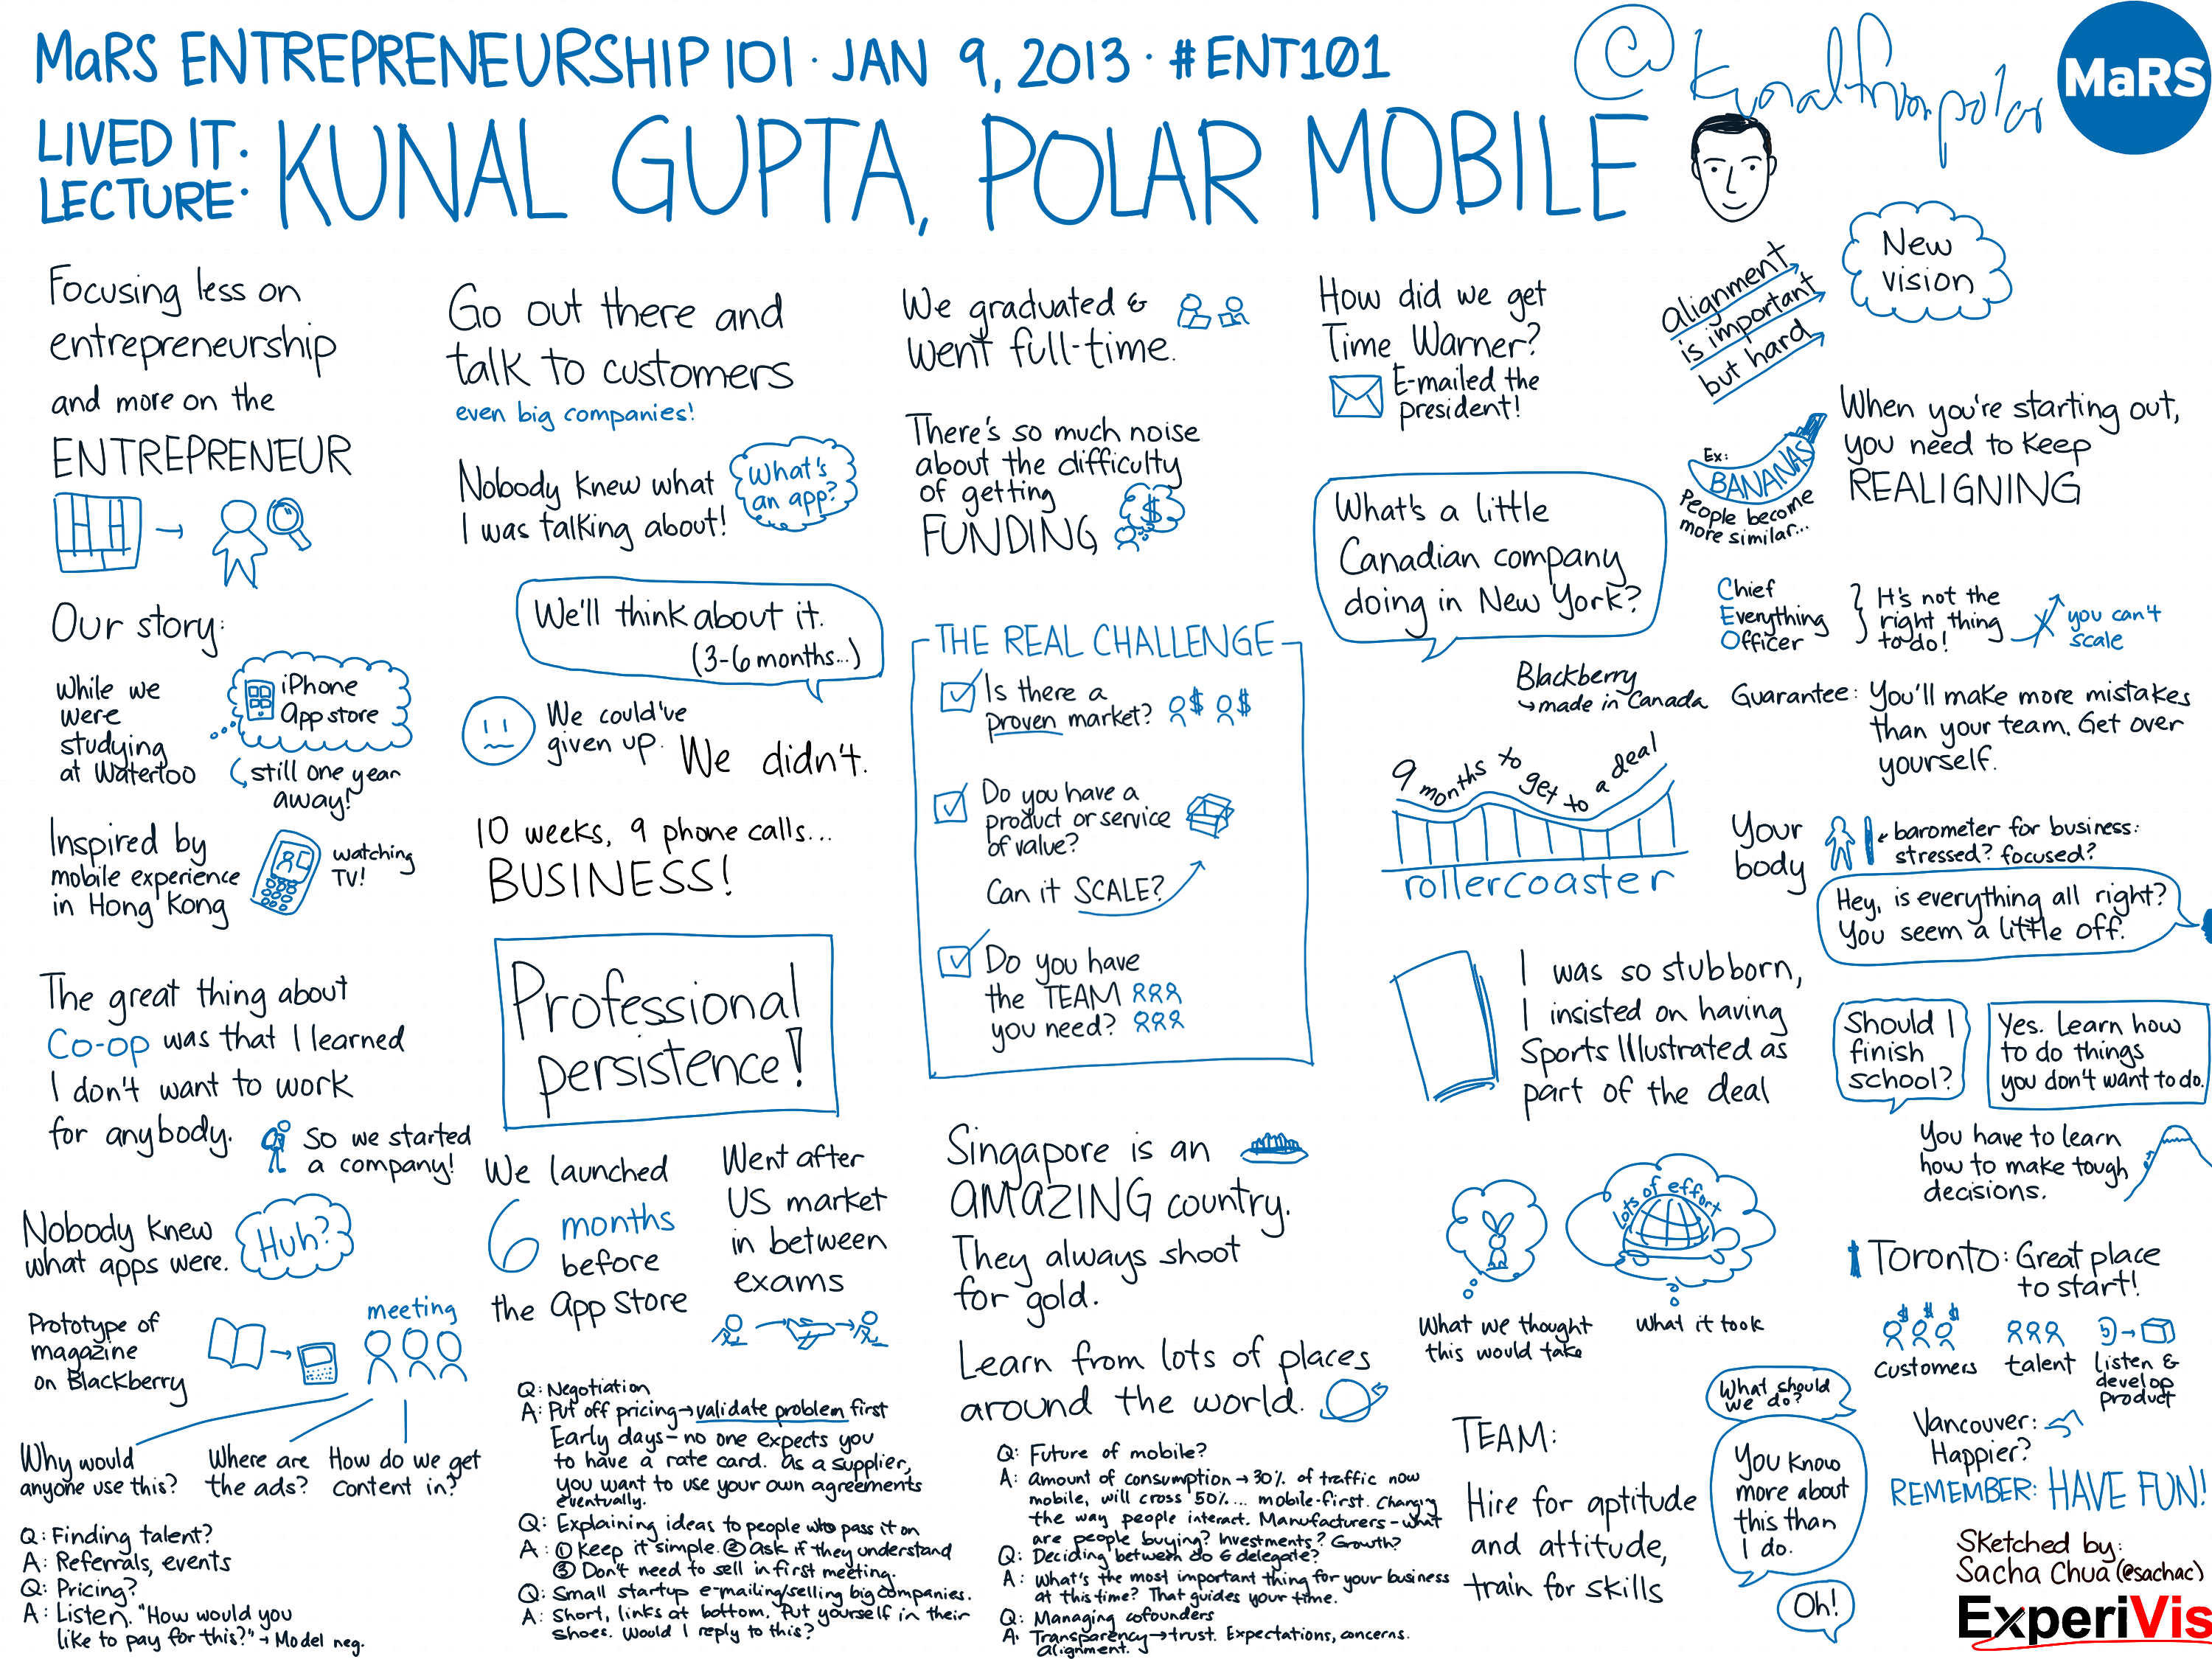 MaRS ENTREPRENEURSHIP 101 · JAN 9, 2013 · #ENT101
@kunalfrompolar
MaRS
LIVED IT:
LECTURE:
KUNAL GUPTA, POLAR MOBILE
Focusing less on
entrepreneurship
and more on the
ENTREPRENEUR
Our story:
While we
were
studying
at Waterloo
iPhone
App store
still one year
away!
Inspired by
mobile experience
in Hong Kong
watching
TV!
The great thing about
Co-op was that I learned
I don't want to work
for anybody.
So we started
a company!
Nobody knew
what apps were.
Huh?
Prototype of
magazine
on Blackberry
meeting
Why would
anyone use this?
Where are
the ads?
How do we get
content in?
Q: Finding talent?
A: Referrals, events
Q: Pricing?
A: Listen. "How would you
like to pay for this?" → Model neg.
Go out there and
talk to customers
even big companies!
Nobody knew what
I was talking about!
What's
an app?
We'll think about it.
(3-6 months...)
We could've
given up.
We didn't.
10 weeks, 9 phone calls...
BUSINESS!
Professional
persistence!
We launched
6 months
before
the App Store
Went after
US market
in between
exams
Q: Negotiation
A: Put off pricing → validate problem first
Early days - no one expects you
to have a rate card. As a supplier,
you want to use your own agreements
eventually.
Q: Explaining ideas to people who pass it on
A: ① Keep it simple. ② Ask if they understand
③ Don't need to sell in first meeting.
Q: Small startup e-mailing/selling big companies.
A: Short, links at bottom. Put yourself in their
shoes. Would I reply to this?
We graduated &
went full-time.
There's so much noise
about the difficulty
of getting
FUNDING
$
THE REAL CHALLENGE
Is there a
proven market?
$ $
Do you have a
product or service
of value?
Can it SCALE?
Do you have
the TEAM
you need?
Singapore is an
AMAZING country.
They always shoot
for gold.
Learn from lots of places
around the world.
Q: Future of mobile?
A: Amount of consumption → 30% of traffic now
mobile, will cross 50%... mobile-first. Changing
the way people interact. Manufacturers - what
are people buying? Investments? Growth?
Q: Deciding between do & delegate?
A: What's the most important thing for your business
at this time? That guides your time.
Q: Managing cofounders
A: Transparency → trust. Expectations, concerns.
Alignment.
How did we get
Time Warner?
E-mailed the
president!
What's a little
Canadian company
doing in New York?
Blackberry
↳ made in Canada
9 months to get to a deal
rollercoaster
I was so stubborn,
I insisted on having
Sports Illustrated as
part of the deal
What we thought
this would take
Lots of effort
What it took
TEAM:
Hire for aptitude
and attitude,
train for skills
What should
we do?
You know
more about
this than
I do.
Oh!
alignment
is important
but hard
New
vision
Ex:
BANANAS
People become
more similar...
When you're starting out,
you need to keep
REALIGNING
Chief
Everything
Officer
It's not the
right thing
to do!
you can't
scale
Guarantee: You'll make more mistakes
than your team. Get over
yourself.
Your
body
← barometer for business:
stressed? focused?
Hey, is everything all right?
You seem a little off.
Should I
finish
school?
Yes. Learn how
to do things
you don't want to do.
You have to learn
how to make tough
decisions.
Toronto: Great place
to start!
$ $ $
customers
talent
listen &
develop
product
Vancouver:
Happier?
REMEMBER: HAVE FUN!
Sketched by:
Sacha Chua (@sachac)
ExperiVis